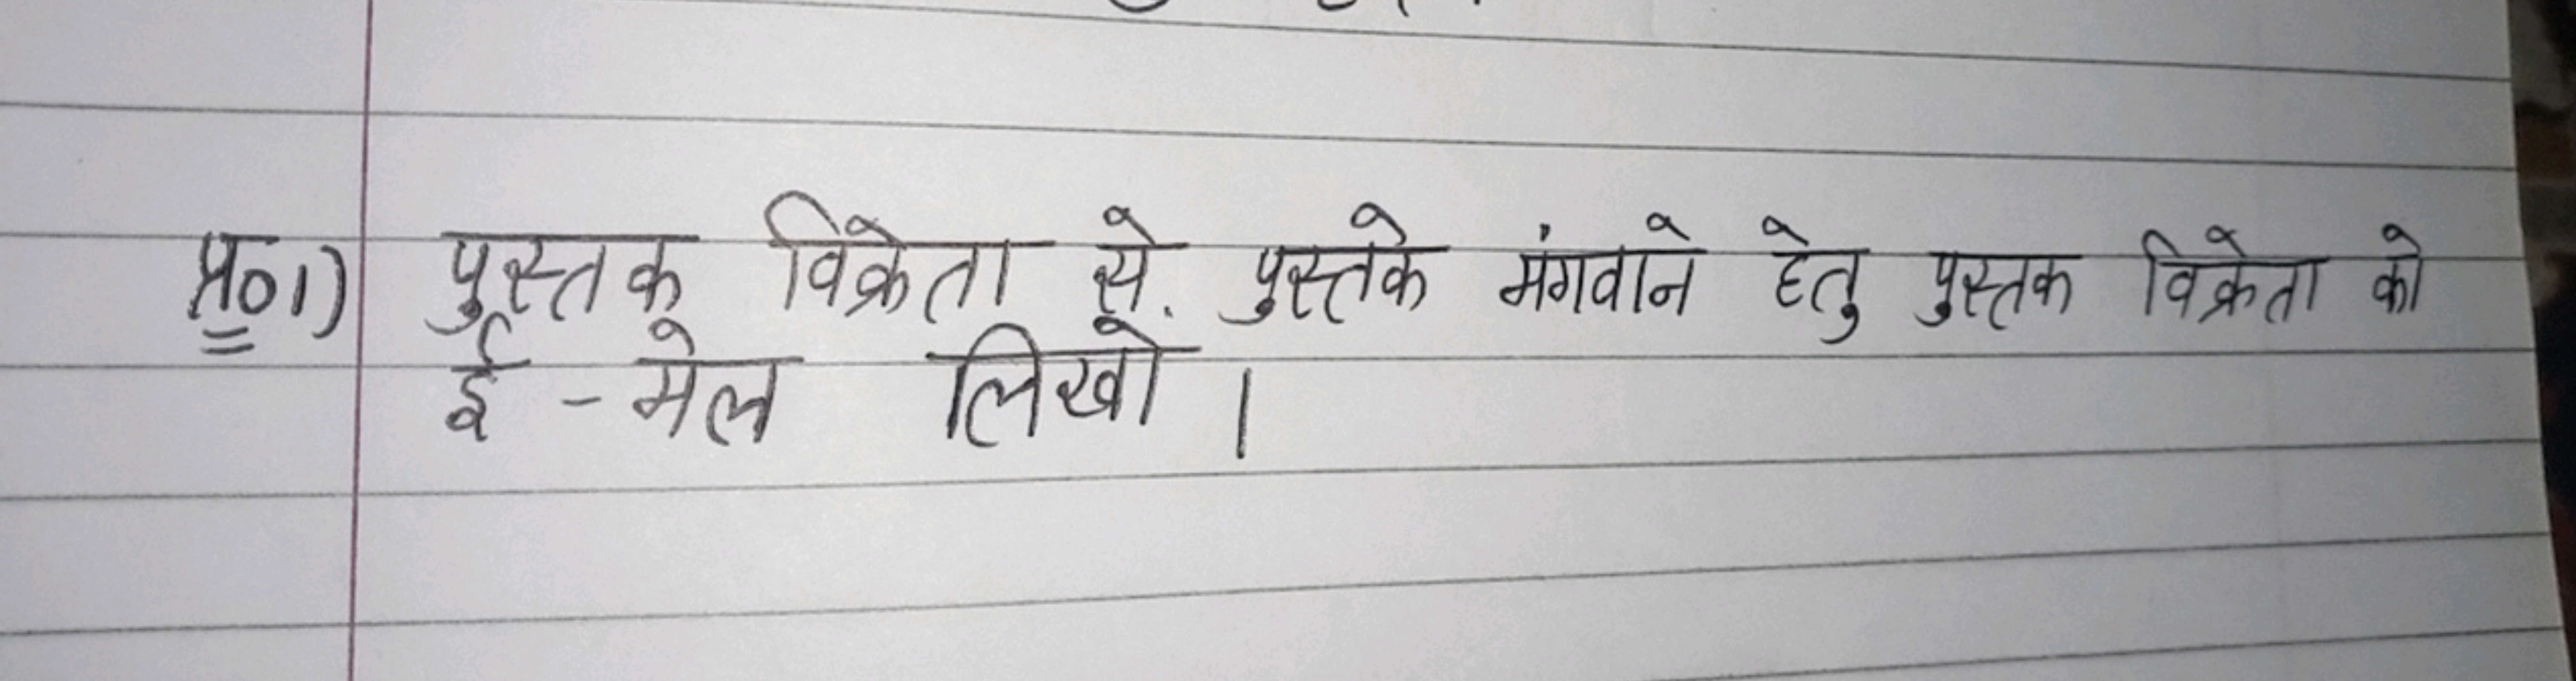 प्र०1) पुस्तक विक्रेता से. पुस्तके मंगवाने हेतु पुस्तक विक्रेता को
ई - मेल लिखो ।